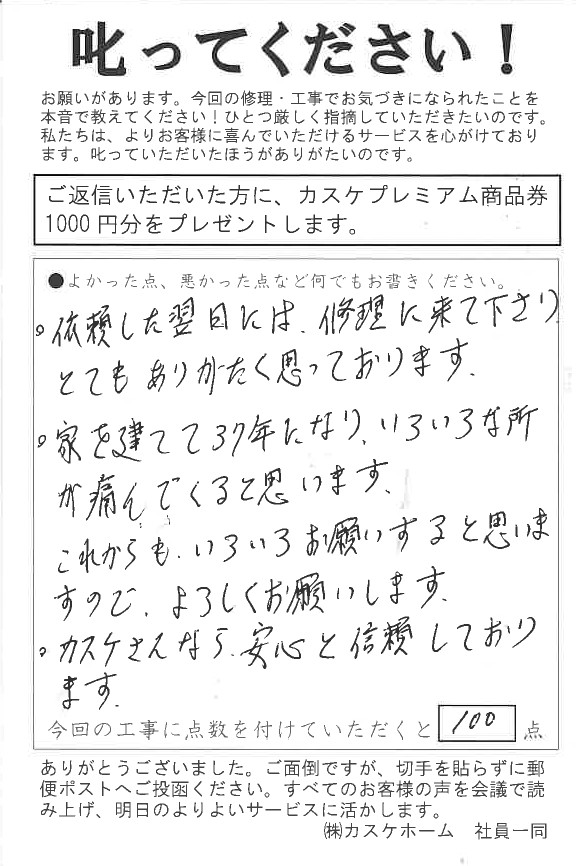 叱ってください！
お願いがあります。今回の修理・工事でお気づきになられたことを
本音で教えてください！ひとつ厳しく指摘していただきたいのです。
私たちは、よりお客様に喜んでいただけるサービスを心がけており
ます。叱っていただいたほうがありがたいのです。
ご返信いただいた方に、カスケプレミアム商品券
1000円分をプレゼントします。
●よかった点、悪かった点など何でもお書きください。
。依頼した翌日には、修理に来て下さり
とてもありがたく思っております。
。家を建てて37年になり、いろいろな所
が痛んでくると思います、
これからも、いろいろお願いすると思いま
すので、よろしくお願いします、
。カスケさんなら、安心と信頼しており
ます、
今回の工事に点数を付けていただくと 100 点
ありがとうございました。ご面倒ですが、切手を貼らずに郵
便ポストへご投函ください。すべてのお客様の声を会議で読
み上げ、明日のよりよいサービスに活かします。
㈱カスケホーム　社員一同